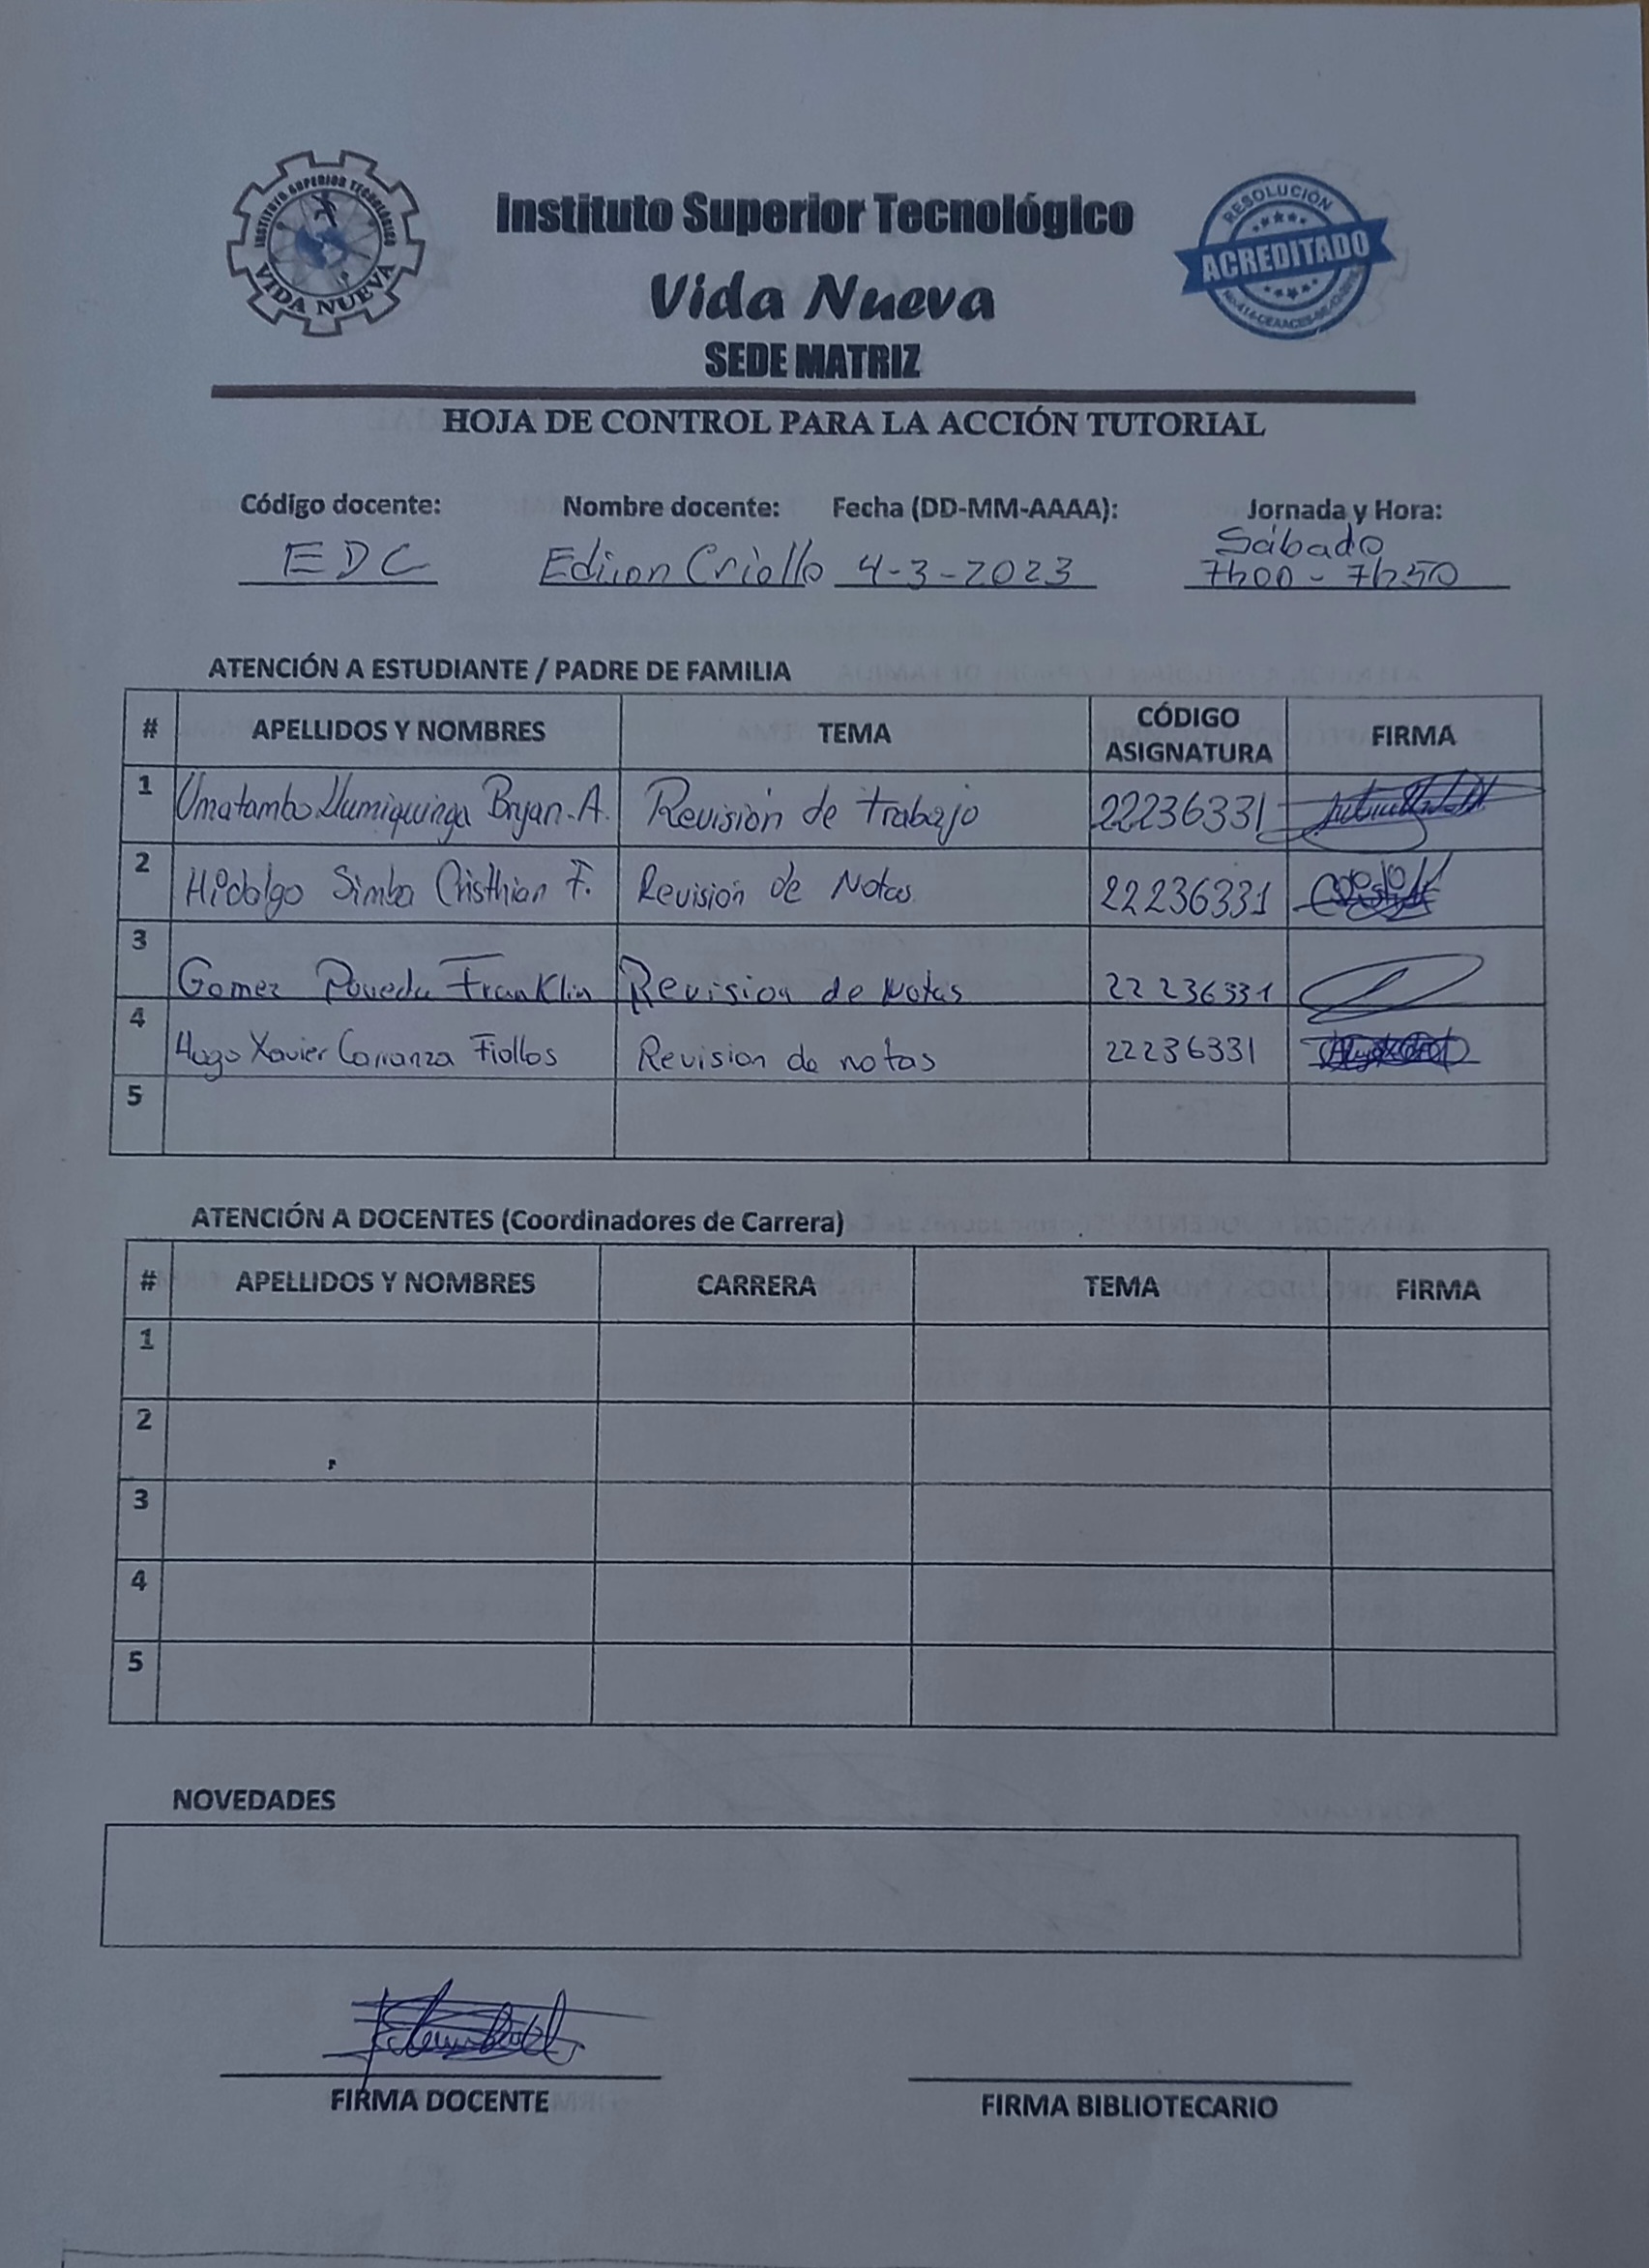 INSTITUTO SUPERIOR TECNOLÓGICO
VIDA NUEVA
Instituto Superior Tecnológico
Vida Nueva
SEDE MATRIZ
RESOLUCIÓN
ACREDITADO
HOJA DE CONTROL PARA LA ACCIÓN TUTORIAL
Código docente: Nombre docente: Fecha (DD-MM-AAAA): Jornada y Hora:
Sábado
EDC Edison Criollo 4-3-2023 7h00 - 7h50
ATENCIÓN A ESTUDIANTE / PADRE DE FAMILIA
# APELLIDOS Y NOMBRES TEMA CÓDIGO ASIGNATURA FIRMA
1 Umatambo Llumiquinga Bryan. A. Revisión de trabajo 22236331
2 Hidalgo Simba Cristhian F. Revisión de Notas. 22236331
3 Gomez Poveda Franklin Revision de Notas 22236331
4 Hugo Xavier Carranza Fiallos Revision de notas 22236331
5
ATENCIÓN A DOCENTES (Coordinadores de Carrera)
# APELLIDOS Y NOMBRES CARRERA TEMA FIRMA
1
2
3
4
5
NOVEDADES
FIRMA DOCENTE FIRMA BIBLIOTECARIO